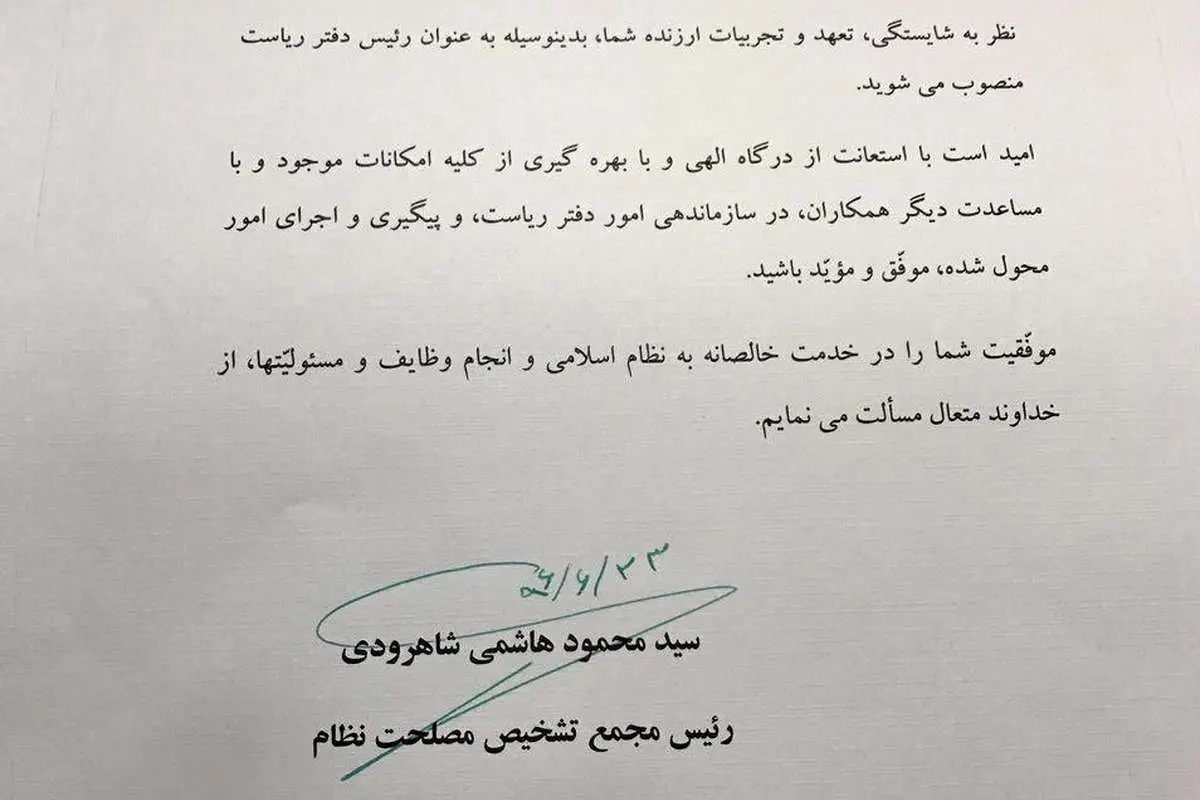 نظر به شایستگی، تعهد و تجربیات ارزنده شما، بدینوسیله به عنوان رئیس دفتر ریاست
منصوب می شوید.
امید است با استعانت از درگاه الهی و با بهره گیری از کلیه امکانات موجود و با
مساعدت دیگر همکاران، در سازماندهی امور دفتر ریاست، و پیگیری و اجرای امور
محول شده، موفّق و مؤیّد باشید.
موفّقیت شما را در خدمت خالصانه به نظام اسلامی و انجام وظایف و مسئولیّتها، از
خداوند متعال مسألت می نمایم.
۹۶/۶/۲۳
سید محمود هاشمی شاهرودی
رئیس مجمع تشخیص مصلحت نظام